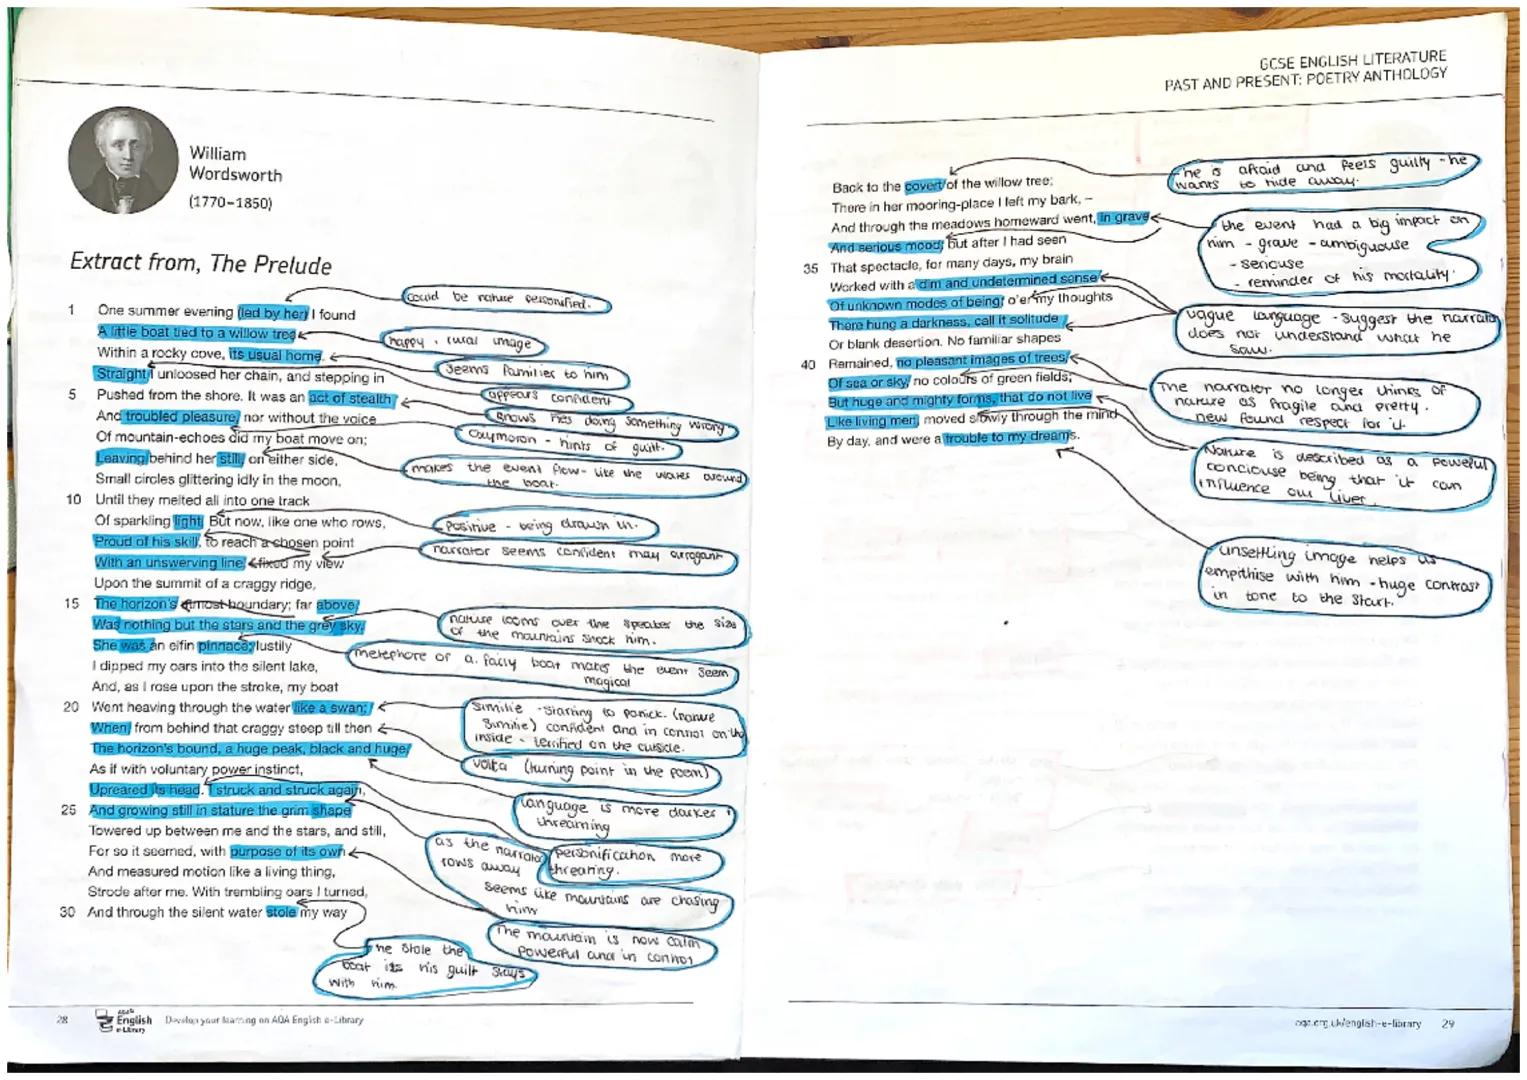 William
Wordsworth
(1770–1850)
Extract from, The Prelude
1 One summer evening (led by her) I found
A little boat tied to a willow tree
Within a rocky cove, its usual home.
Straight I unloosed her chain, and stepping in
5 Pushed from the shore. It was an act of stealth
And troubled pleasure, nor without the voice
Of mountain-echoes did my boat move on;
Leaving behind her still, on either side,
Small circles glittering idly in the moon,
10 Until they melted all into one track
Of sparkling light. But now, like one who rows,
Proud of his skill, to reach a chosen point
With an unswerving line, I fixed my view
Upon the summit of a craggy ridge,
15 The horizon's utmost boundary; far above
Was nothing but the stars and the grey sky.
She was an elfin pinnace; lustily
I dipped my oars into the silent lake,
And, as I rose upon the stroke, my boat
20 Went heaving through the water like a swan;
When, from behind that craggy steep till then
The horizon's bound, a huge peak, black and huge,
As if with voluntary power instinct,
Upreared its head. I struck and struck again,
25 And growing still in stature the grim shape
Towered up between me and the stars, and still,
For so it seemed, with purpose of its own
And measured motion like a living thing,
Strode after me. With trembling oars I turned,
30 And through the silent water stole my way
could be nature personified.
happy, rural image
Seems familier to him
appears confident
knows he's doing something wrong
Oxymoron - hints of guilt.
makes the event flow - like the waves around
the boat.
Positive - being drawn in.
narrator seems confident may arrogant
nature looms over the speaker the size
of the mountains shock him.
metephore of a fairy boat makes the event seem
magical
Similie - starting to panick. (nature
similie) confident and in control on the
inside - terrified on the outside.
volta (turning point in the poem)
language is more darker +
threatning
personification more
threatning.
as the narrator
rows away
seems like mountains are chasing
him
The mountain is now calm
powerful and in control
he stole the
boat its his guilt stays
with him.
28
English
e-Library
Develop your learning on AQA English e-Library
GCSE ENGLISH LITERATURE
PAST AND PRESENT: POETRY ANTHOLOGY
Back to the covert of the willow tree;
There in her mooring-place I left my bark, –
And through the meadows homeward went, in grave
And serious mood; but after I had seen
35 That spectacle, for many days, my brain
Worked with a dim and undetermined sense
Of unknown modes of being; o'er my thoughts
There hung a darkness, call it solitude
Or blank desertion. No familiar shapes
40 Remained, no pleasant images of trees,
Of sea or sky, no colours of green fields;
But huge and mighty forms, that do not live
Like living men, moved slowly through the mind
By day, and were a trouble to my dreams.
he is afraid and feels guilty - he
wants to hide away.
the event had a big impact on
him - grave - ambiguouse
- seriouse
- reminder of his mortality.
vague language - suggest the narrator
does not understand what he
saw.
The narrator no longer thinks of
nature as fragile and pretty.
new found respect for it
Nature is described as a powerful
conciouse being that it can
influence our lives.
unsettling image helps us
empithise with him - huge contrast
in tone to the start.
aqa.org.uk/english-e-library 29